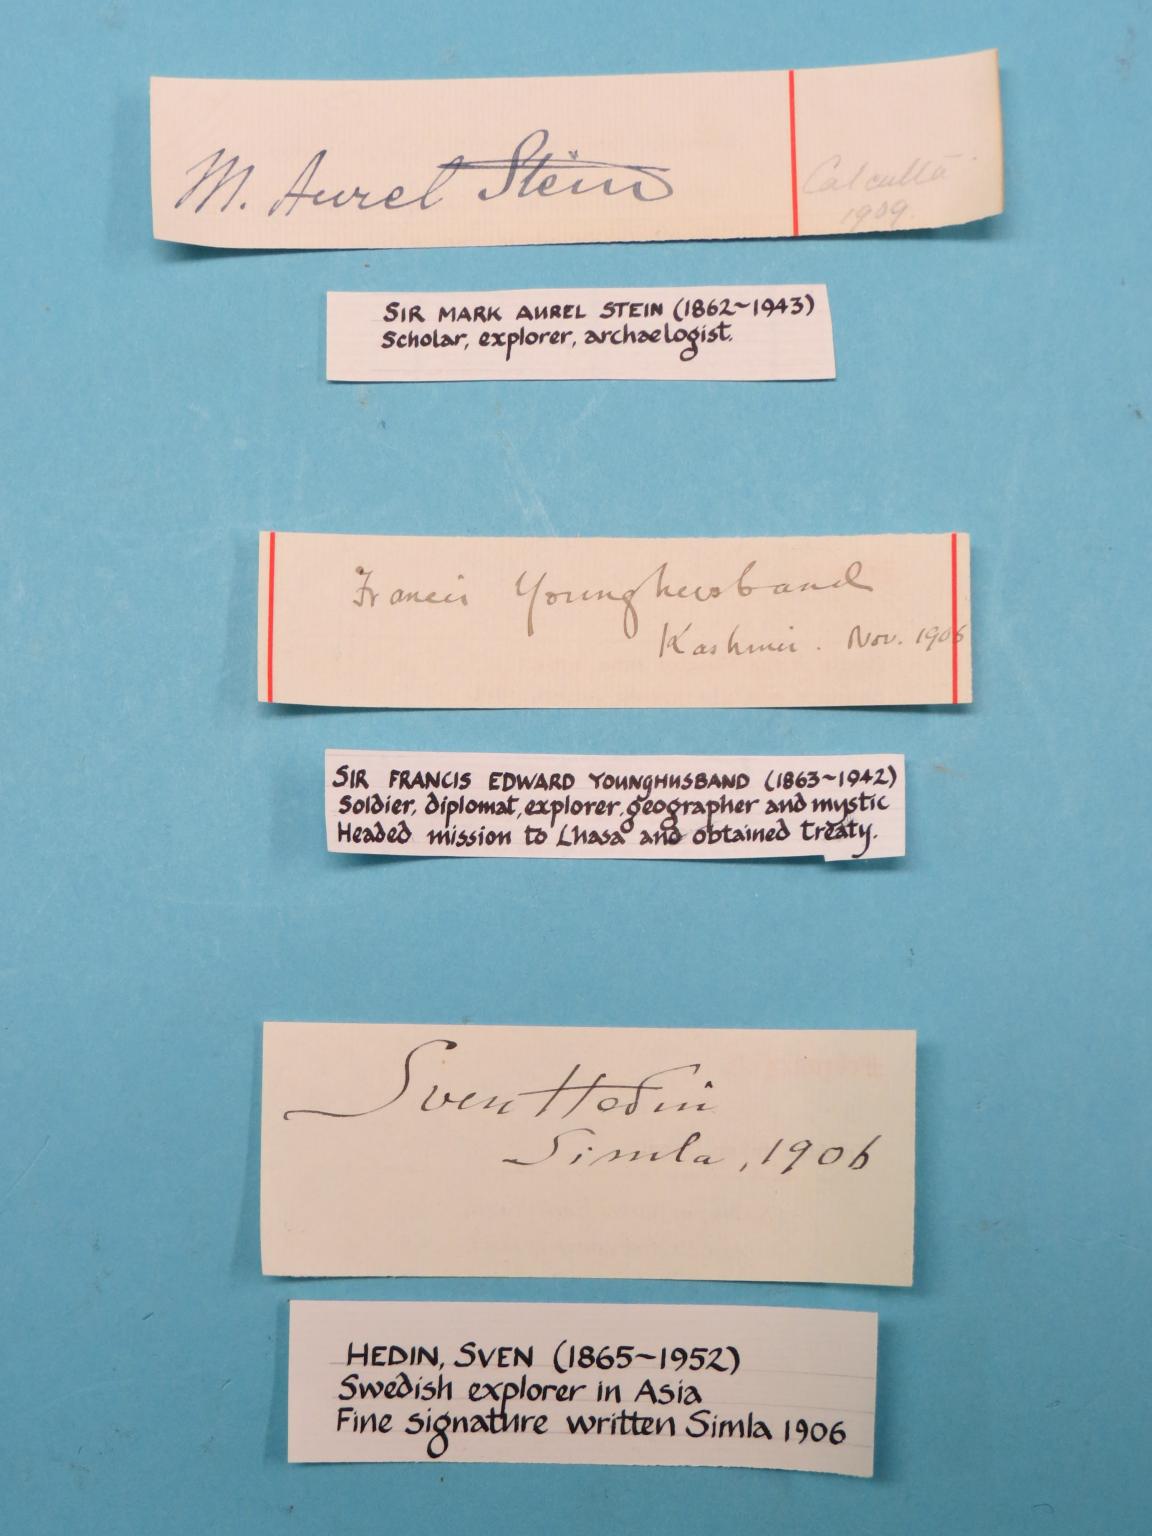 M. Aurel Stein
Calcutta
1909.
SIR MARK AUREL STEIN (1862~1943)
Scholar, explorer, archaelogist.
Francis Younghusband
Kashmir. Nov. 1906
SIR FRANCIS EDWARD YOUNGHUSBAND (1863~1942)
Soldier, diplomat, explorer, geographer and mystic
Headed mission to Lhasa and obtained treaty.
Sven Hedin
Simla, 1906
HEDIN, SVEN (1865~1952)
Swedish explorer in Asia
Fine signature written Simla 1906